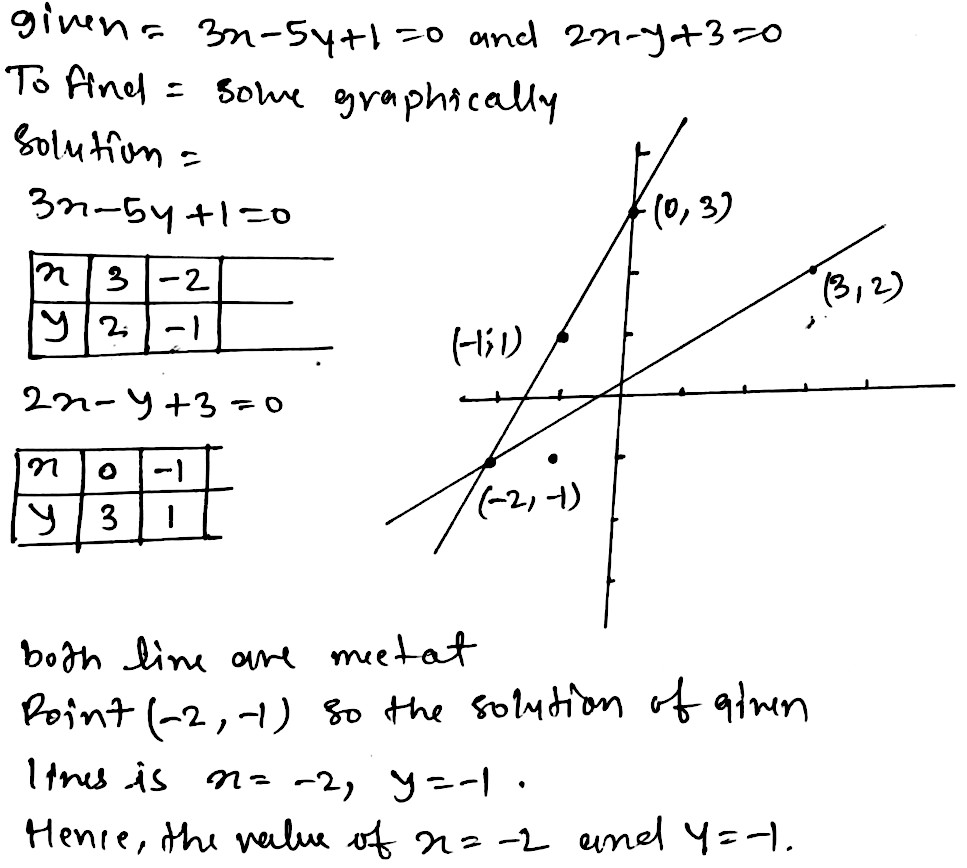 given = 3x-5y+1=0 and 2x-y+3=0
To find = solve graphically
Solution =
3x-5y+1=0
x 3 -2
y 2 -1
2x-y+3=0
x 0 -1
y 3 1
(0, 3)
(3, 2)
(-1, 1)
(-2, -1)
both line are meetat
Point (-2, -1) so the solution of given
lines is x= -2, y=-1.
Hence, the value of x=-2 and y=-1.